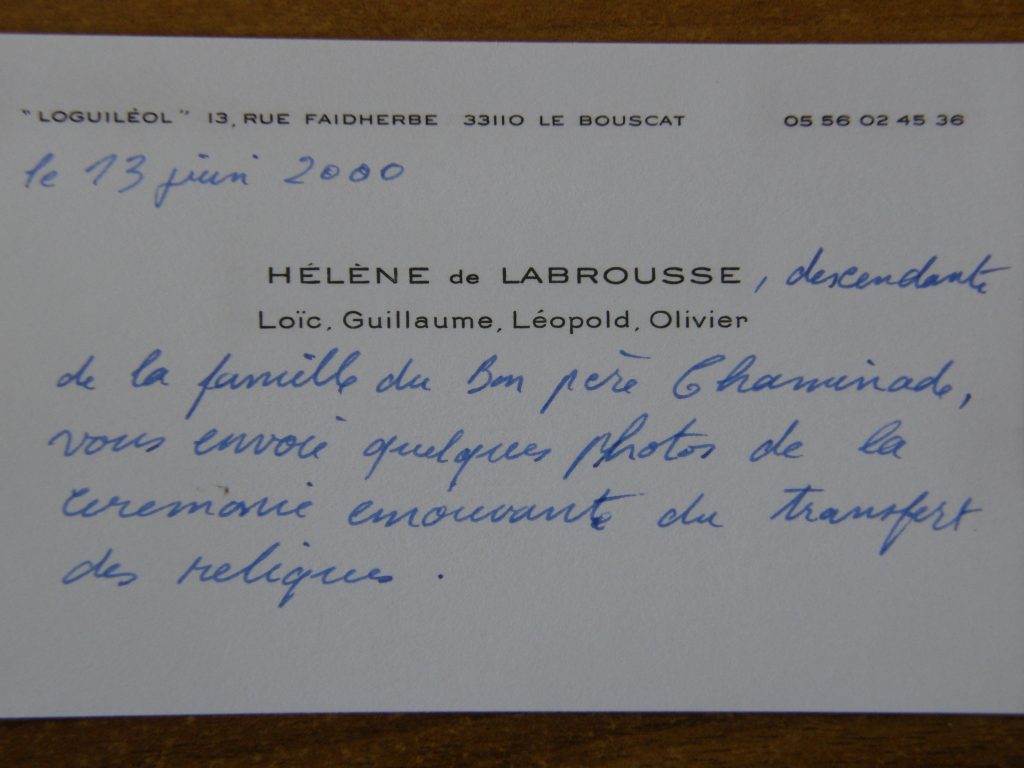 "LOGUILÉOL" 13, RUE FAIDHERBE 33110 LE BOUSCAT 05 56 02 45 36
le 13 juin 2000
HÉLÈNE de LABROUSSE, descendante
Loïc, Guillaume, Léopold, Olivier
de la famille du Bon père Chaminade,
vous envoie quelques photos de la
ceremonie emouvante du transfert
des reliques.